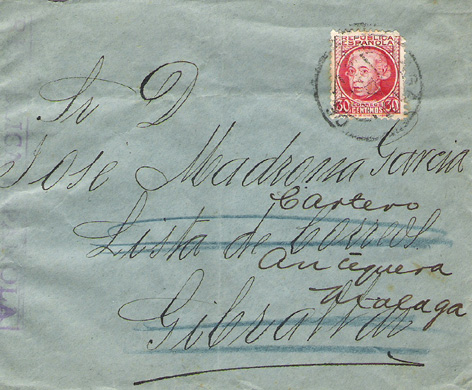 REPÚBLICA
ESPAÑOLA
30 CÉNTIMOS 30
Sr D
Jose Madrona Garcia
Cartero
Lista de Correos
Antequera
Malaga
Gibraltar